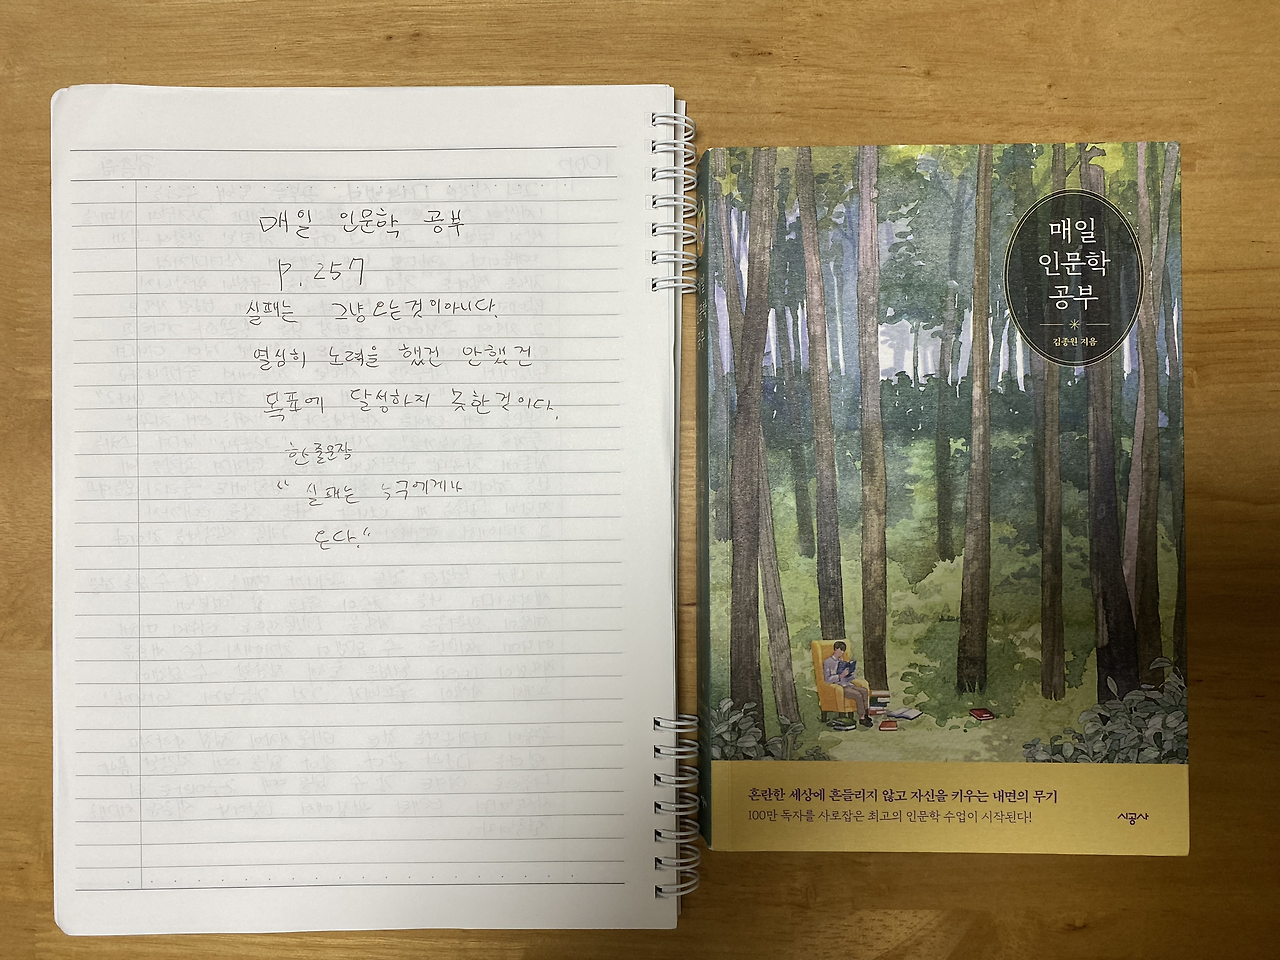 매일 인문학 공부
P. 257
실패는 그냥 오는것이아니다.
열심히 노력을 했건 안했건
목표에 달성하지 못한것이다.
한줄문장
“ 실패는 누구에게나
온다.“
매일
인문학
공부
김종원 지음
혼란한 세상에 흔들리지 않고 자신을 키우는 내면의 무기
100만 독자를 사로잡은 최고의 인문학 수업이 시작된다!
시공사